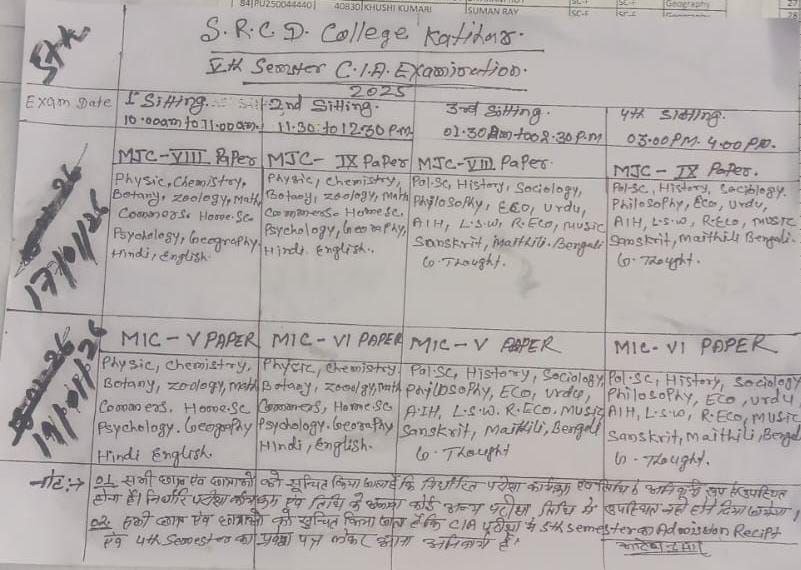 84 PU250044440 40830 KHUSHI KUMARI SUMAN RAY SC-F SC-F Geography 27
28
S.R.C.D. College Katihar.
Vth Semester C.I.A. Examination.
2025
Exam Date
1st Sitting.
10.00am to 11.00am.
2nd Sitting.
11.30: to 12.30 P.m.
3rd Sitting.
01.30 Pm to 02.30 P.m
4th Sitting.
03.00 PM. 4.00 Pm.
17/01/26
MJC-VIII Paper
Physic, Chemistry,
Botany, Zoology, Math
Commers. Home.Sc
Psychology, Geography
Hindi, English.
MJC- IX Paper
Physic, Chemistry,
Botany, Zoology, Math
Commerse Home Sc,
Psychology, Geography,
Hindi, English.
MJC-VIII Paper.
Pol.Sc, History, Sociology,
Philosophy, Eco, Urdu,
AIH, L.S.W, R.Eco, Music
Sanskrit, Maithili. Bengali
G. Thought.
MJC- IX Paper.
Pol.Sc, History, Sociology.
Philosophy, Eco, Urdu,
AIH, L.S.W, R.Eco, Music
Sanskrit, Maithili Bengali.
G. Thought.
19/01/26
MIC-V PAPER
Physic, Chemistry,
Botany, Zoology, Math
Commers. Home.Sc
Psychology. Geography
Hindi English.
MIC-VI PAPER
Physic, Chemistry.
Botany, Zoology, Math
Commers, Home Sc
Psychology. Geography
Hindi, English.
MIC-V PAPER
Pol.Sc, History, Sociology,
Philosophy, Eco, Urdu,
A.IH, L.S.W. R.Eco. Music
Sanskrit, Maithili, Bengali
G. Thought
MIC-VI PAPER
Pol.Sc, History, Sociology
Philosophy, Eco, Urdu
AIH, L.S.W, R.Eco, Music
Sanskrit, Maithili, Bengali
G. Thought.
नोट:→ 01. सभी छात्र एवं छात्राओं को सूचित किया जाता है कि निर्धारित परीक्षा कार्यक्रम एवं तिथि में उपस्थित
होना है। निर्धारित परीक्षा कार्यक्रम एवं तिथि के अलावा कोई अन्य परीक्षा तिथि में उपस्थित नहीं होने दिया जायेगा।
02. सभी छात्र एवं छात्राओं को सूचित किया जाता है कि CIA परीक्षा में 5th semester का Admission Recipt
एवं 4th Semester का प्रवेश पत्र लेकर आना अनिवार्य है।